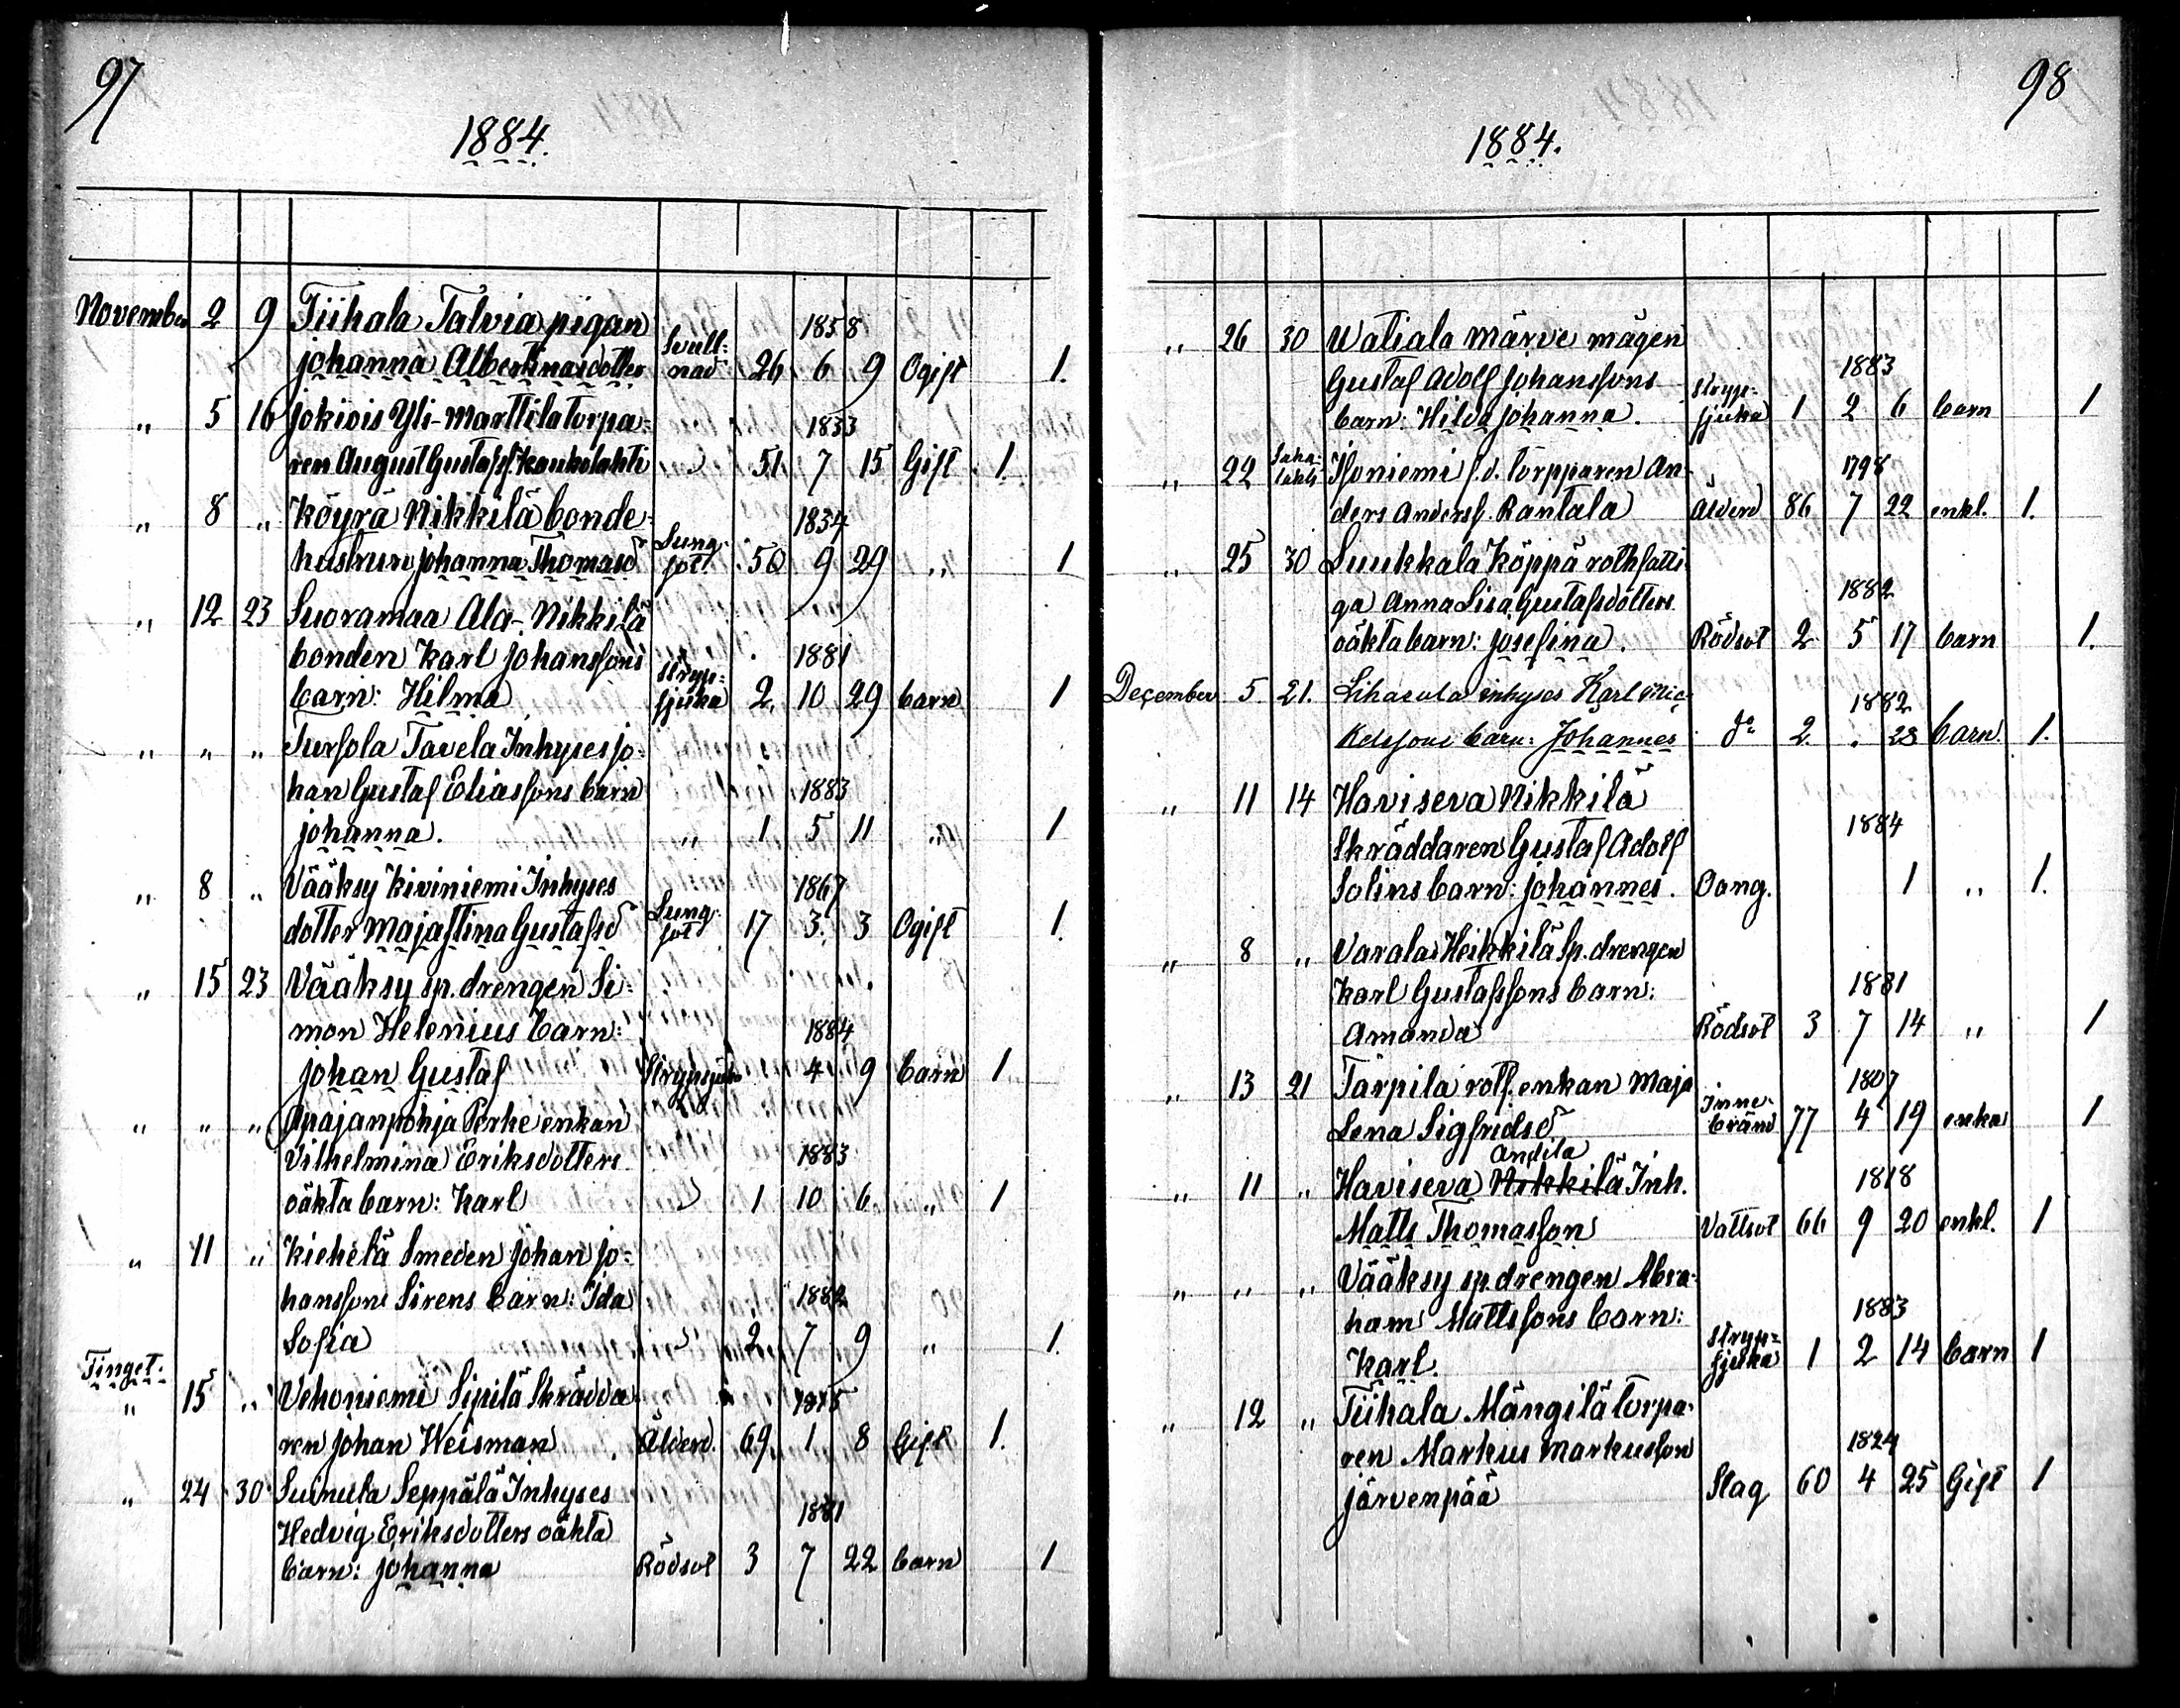 97
1884.
November 2 9 Tiihala Talvia pigan 1858
Johanna Albertinasdotter Svull-nad 26 6 9 Ogift 1.
„ 5 16 Jokiois Yli-Marttila torpa- 1833
ren August Gustafss. Kaukolahti 51 7 15 Gift 1.
„ 8 „ Köyrä Nikkilä bonde- 1834
hustrun Johanna Thomasd Lung-sot 50 9 29 „ 1
„ 12 23 Suoramaa Ala-Nikkilä
bonden Karl Johanssons 1881
barn: Hilma Stryp-sjuka 2 10 29 barn 1
„ „ „ Tursola Tavela Inhyses Jo-
han Gustaf Eliassons barn 1883
Johanna. „ 1 5 11 „ 1
„ 8 „ Vääksy Kiviniemi Inhyses 1867
dotter Maja Stina Gustafsd Lung-sot 17 3 3 Ogift 1.
„ 15 23 Vääksy sp. drengen Si-
mon Helenius barn: 1884
Johan Gustaf Strypsjuka 4 9 barn 1
„ „ „ Apajanpohja Perke enkan
Vilhelmina Eriksdotters 1883
oäkta barn: Karl 1 10 6 „ 1
„ 11 „ Kiehelä Smeden Johan Jo-
hanssons Sirens barn: Ida 1882
Sofia 2 7 9 „ 1.
Tinget:
„ 15 „ Vehoniemi Sipilä Skrädda- 1815
ren Johan Weisman Ålderd. 69 1 8 Gift 1.
„ 24 30 Suinula Seppälä Inhyses
Hedvig Eriksdotters oäkta 1881
barn: Johanna Rödsot 3 7 22 barn 1
98
1884.
„ 26 30 Watiala Märve mågen
Gustaf Adolf Johanssons 1883
barn: Hilda Johanna. Stryp-sjuka 1 2 6 barn 1
„ 22 Saha-lahti Isoniemi f.d. torpparen An- 1798
ders Anderss. Rantala Ålderd 86 7 22 enkl. 1.
„ 25 30 Luukkala Köppä rothfatti-
ga Anna Lisa Gustafsdotters 1882
oäkta barn: Josefina. Rödsot 2 5 17 barn 1.
December 5. 21. Lihasula inhyses Karl Mic- 1882
kelssons barn: Johannes do 2 . 23 barn. 1.
„ 11 14 Haviseva Nikkilä
Skräddaren Gustaf Adolf 1884
Solins barn: Johannes. Oang. 1 „ 1.
„ 8 „ Varala Heikkilä sp. drengen
Karl Gustafssons barn: 1881
Amanda Rödsot 3 7 14 „ 1
„ 13 21 Tarpila rotf. enkan Maja 1807
Lena Sigfridsd Inne-bränd 77 4 19 enka 1
Andila
„ 11 „ Havisera Nikkilä Inh. 1818
Matts Thomasson Vattsot 66 9 20 enkl. 1
„ „ „ Vääksy sp. drengen Abra-
ham Mattssons barn: 1883
Karl. Stryp-sjuka 1 2 14 barn 1
„ 12 „ Tiihala Mängilä torpa-
ren Markus Markusson 1824
Järvenpää Slag 60 4 25 Gift 1